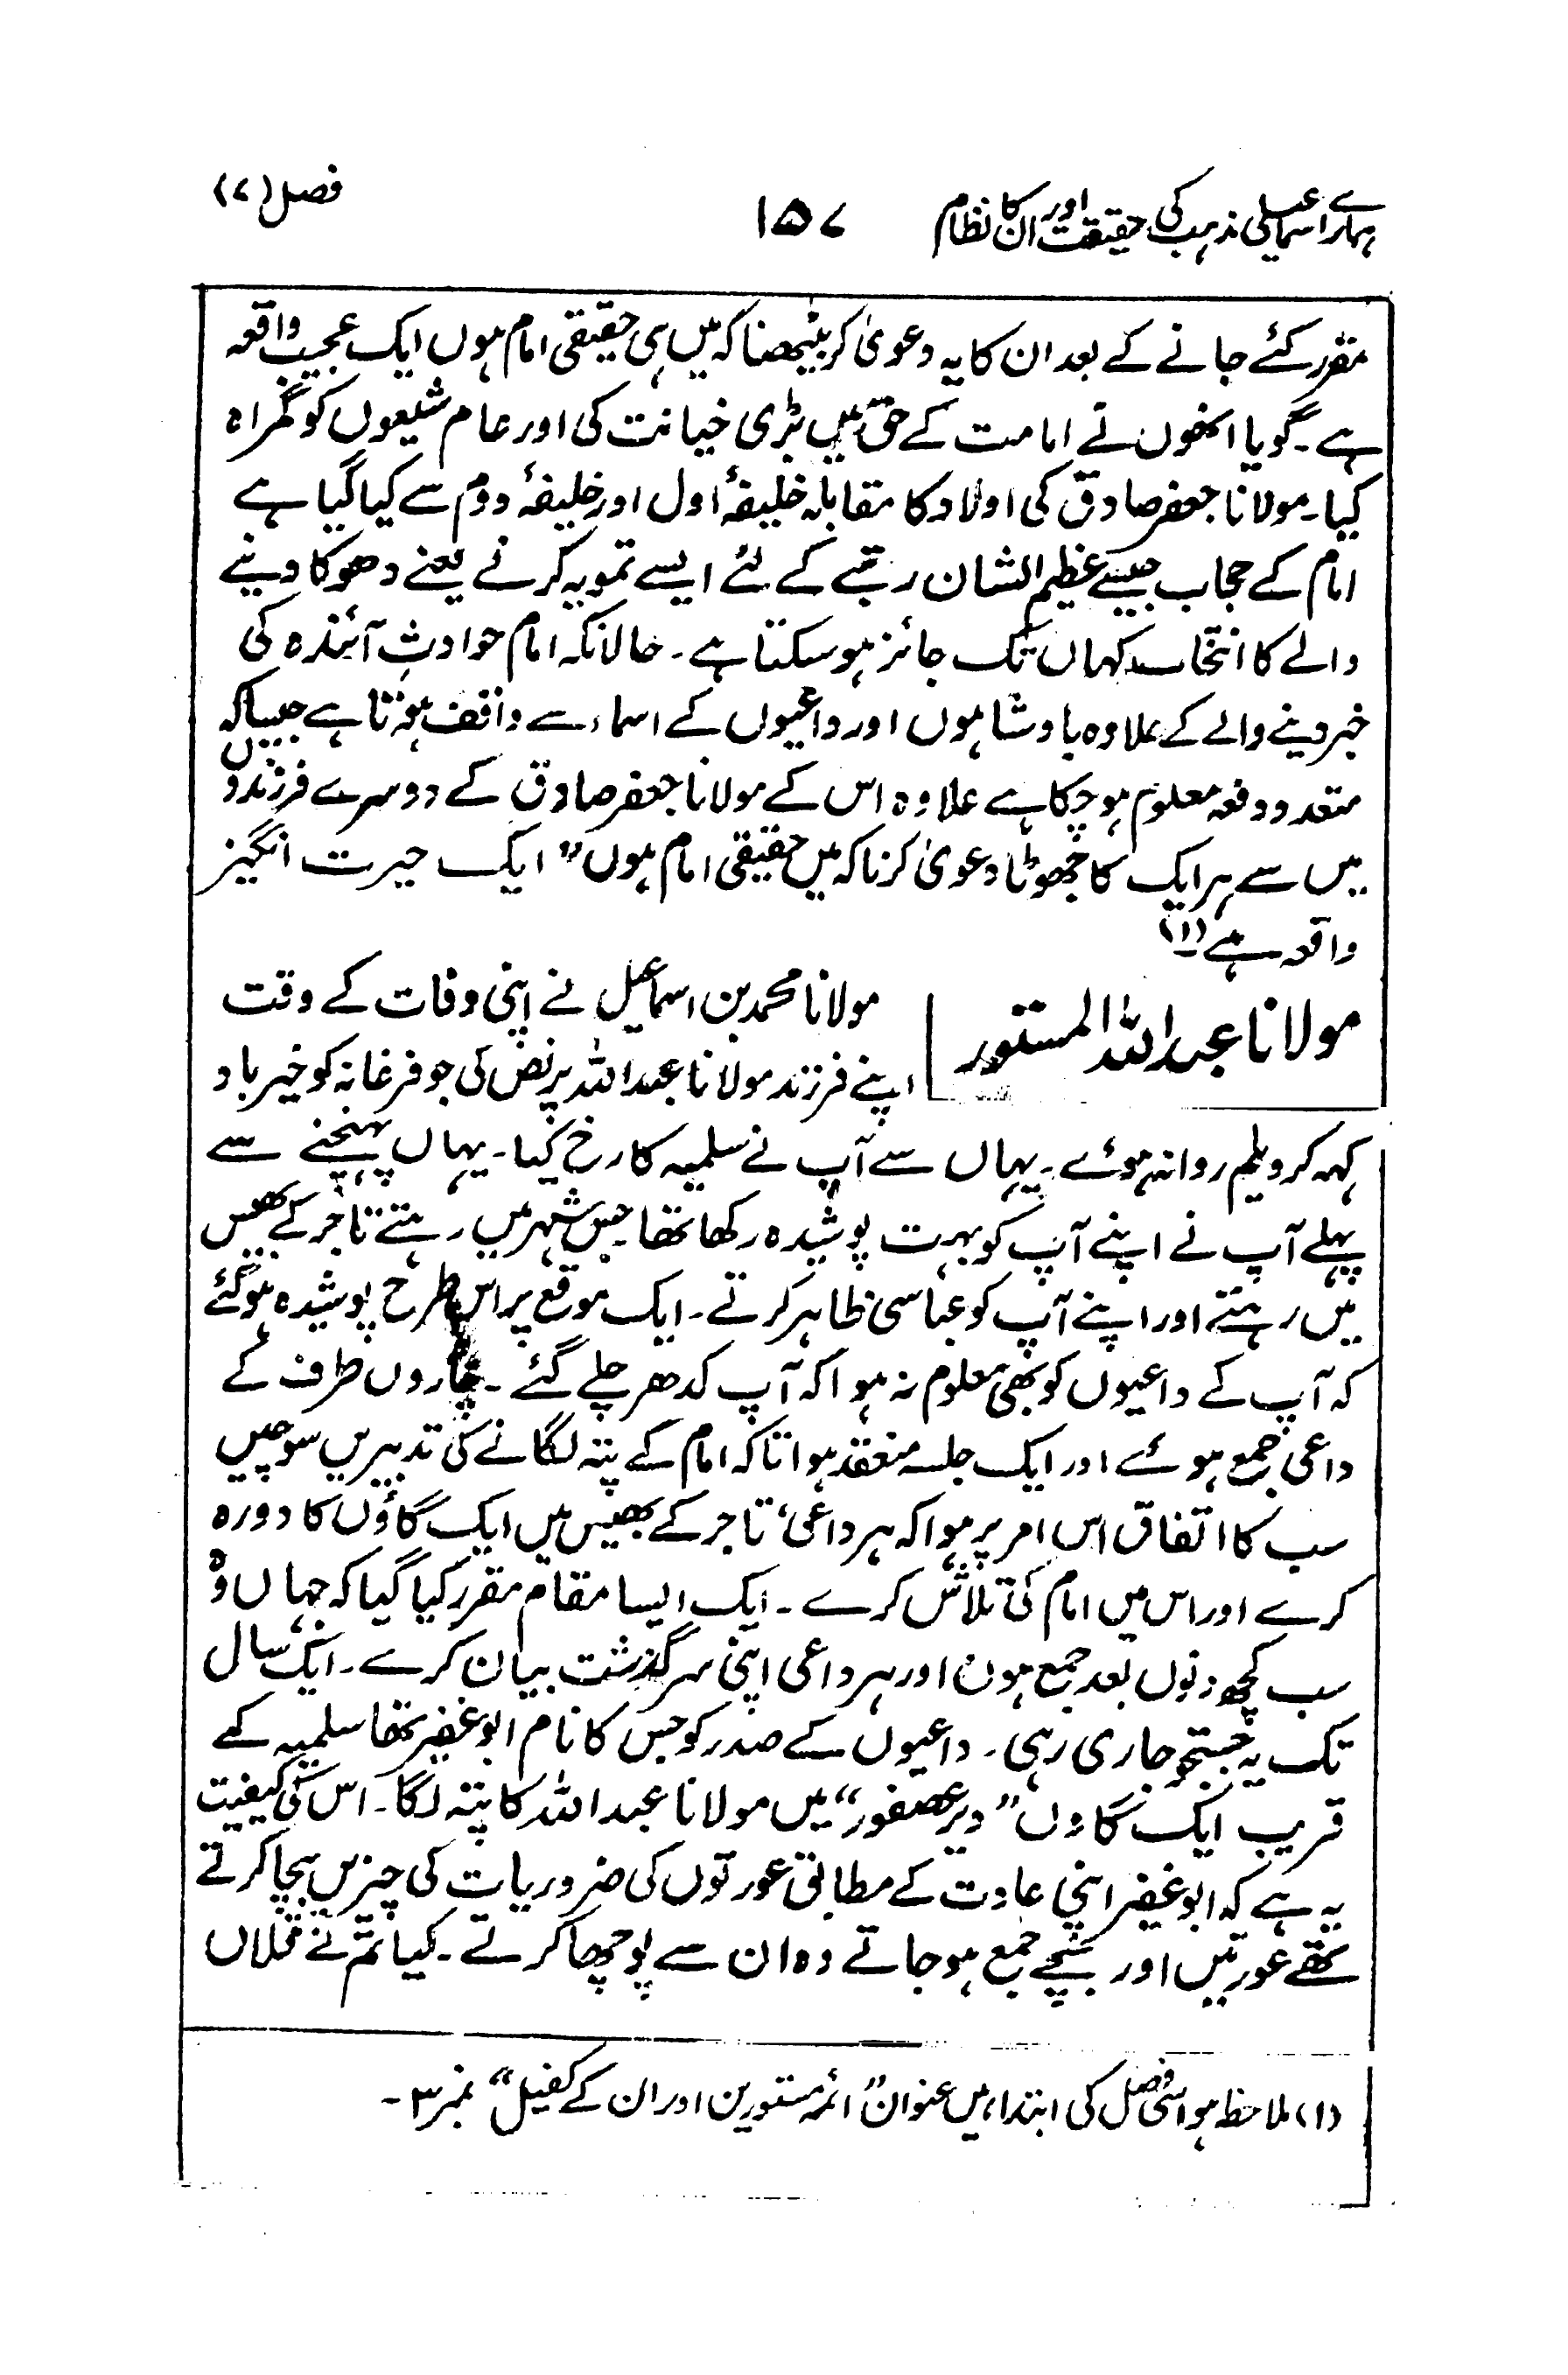 ہمارے اسماعیلی مذہب کی حقیقت اور ان کا نظام ۱۵۷ فصل (۷)
مقرر کئے جانے کے بعد ان کا یہ دعویٰ کر بیٹھنا کہ میں ہی حقیقی امام ہوں ایک عجیب واقعہ
ہے ۔ گویا انھوں نے امامت کے حق میں بڑی خیانت کی اور عام شیعوں کو گمراہ
کیا ۔ مولانا جعفر صادق کی اولاد کا مقابلہ خلیفۂ اول اور خلیفۂ دوم سے کیا گیا ہے
امام کے حجاب جیسے عظیم الشان رتبے کے لئے ایسے تمویہ کرنے یعنے دھوکا دینے
والے کا انتخاب کہاں تک جائز ہو سکتا ہے ۔ حالانکہ امام حوادثِ آئندہ کی
خبر دینے والے کے علاوہ بادشاہوں اور داعیوں کے اسماء سے واقف ہوتا ہے جیسا کہ
متعدد دفعہ معلوم ہو چکا ہے علاوہ اس کے مولانا جعفر صادق کے دوسرے فرزندوں
میں سے ہر ایک کا جھوٹا دعویٰ کرنا کہ میں حقیقی امام ہوں” ایک حیرت انگیز
واقعہ ہے (۱)
مولانا عبداللہ المستور
مولانا محمد بن اسماعیل نے اپنی وفات کے وقت
اپنے فرزند مولانا عبداللہ پر نص کی جو فرغانہ کو خیرباد
کہہ کر دیلم روانہ ہوئے ۔ یہاں سے آپ نے سلمیہ کا رخ کیا ۔ یہاں پہنچنے سے
پہلے آپ نے اپنے آپ کو بہت پوشیدہ رکھا تھا جس شہر میں رہتے تاجر کے بھیس
میں رہتے اور اپنے آپ کو عباسی ظاہر کرتے ۔ ایک موقع پر اس طرح پوشیدہ ہو گئے
کہ آپ کے داعیوں کو بھی معلوم نہ ہوا کہ آپ کدھر چلے گئے ۔ چاروں طرف کے
داعی جمع ہوئے اور ایک جلسہ منعقد ہوا تاکہ امام کے پتہ لگانے کی تدبیریں سوچیں
سب کا اتفاق اس امر پر ہوا کہ ہر داعی، تاجر کے بھیس میں ایک گاؤں کا دورہ
کرے اور اس میں امام کی تلاش کرے ۔ ایک ایسا مقام مقرر کیا گیا کہ جہاں وہ
سب کچھ دنوں بعد جمع ہوں اور ہر داعی اپنی سرگذشت بیان کرے ۔ ایک سال
تک یہ جستجو جاری رہی ۔ داعیوں کے صدر کو جس کا نام ابوغفیر تھا سلمیہ کے
قریب ایک گاوں ”دیر عصفور“ میں مولانا عبداللہ کا پتہ لگا ۔ اس کی کیفیت
یہ ہے کہ ابوغفیر اپنی عادت کے مطابق عورتوں کی ضروریات کی چیزیں بیچا کرتے
تھے عورتیں اور بچے جمع ہو جاتے وہ ان سے پوچھا کرتے ۔ کیا تم نے فلاں
(۱) ملاحظہ ہو اسی فصل کی ابتداء میں عنوان ”ائمہ مستورین اور ان کے کفیل“ نمبر ۳ ۔